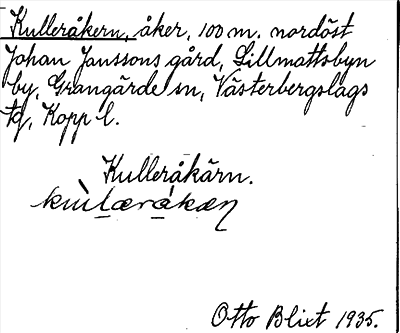 Kulleråkern, åker, 100 m. nordöst
Johan Janssons gård, Lillmattsbyn
by, Grangärde sn, Västerbergslags
tg, Kopp l.
Kulleråkärn.
Otto Blixt 1935.